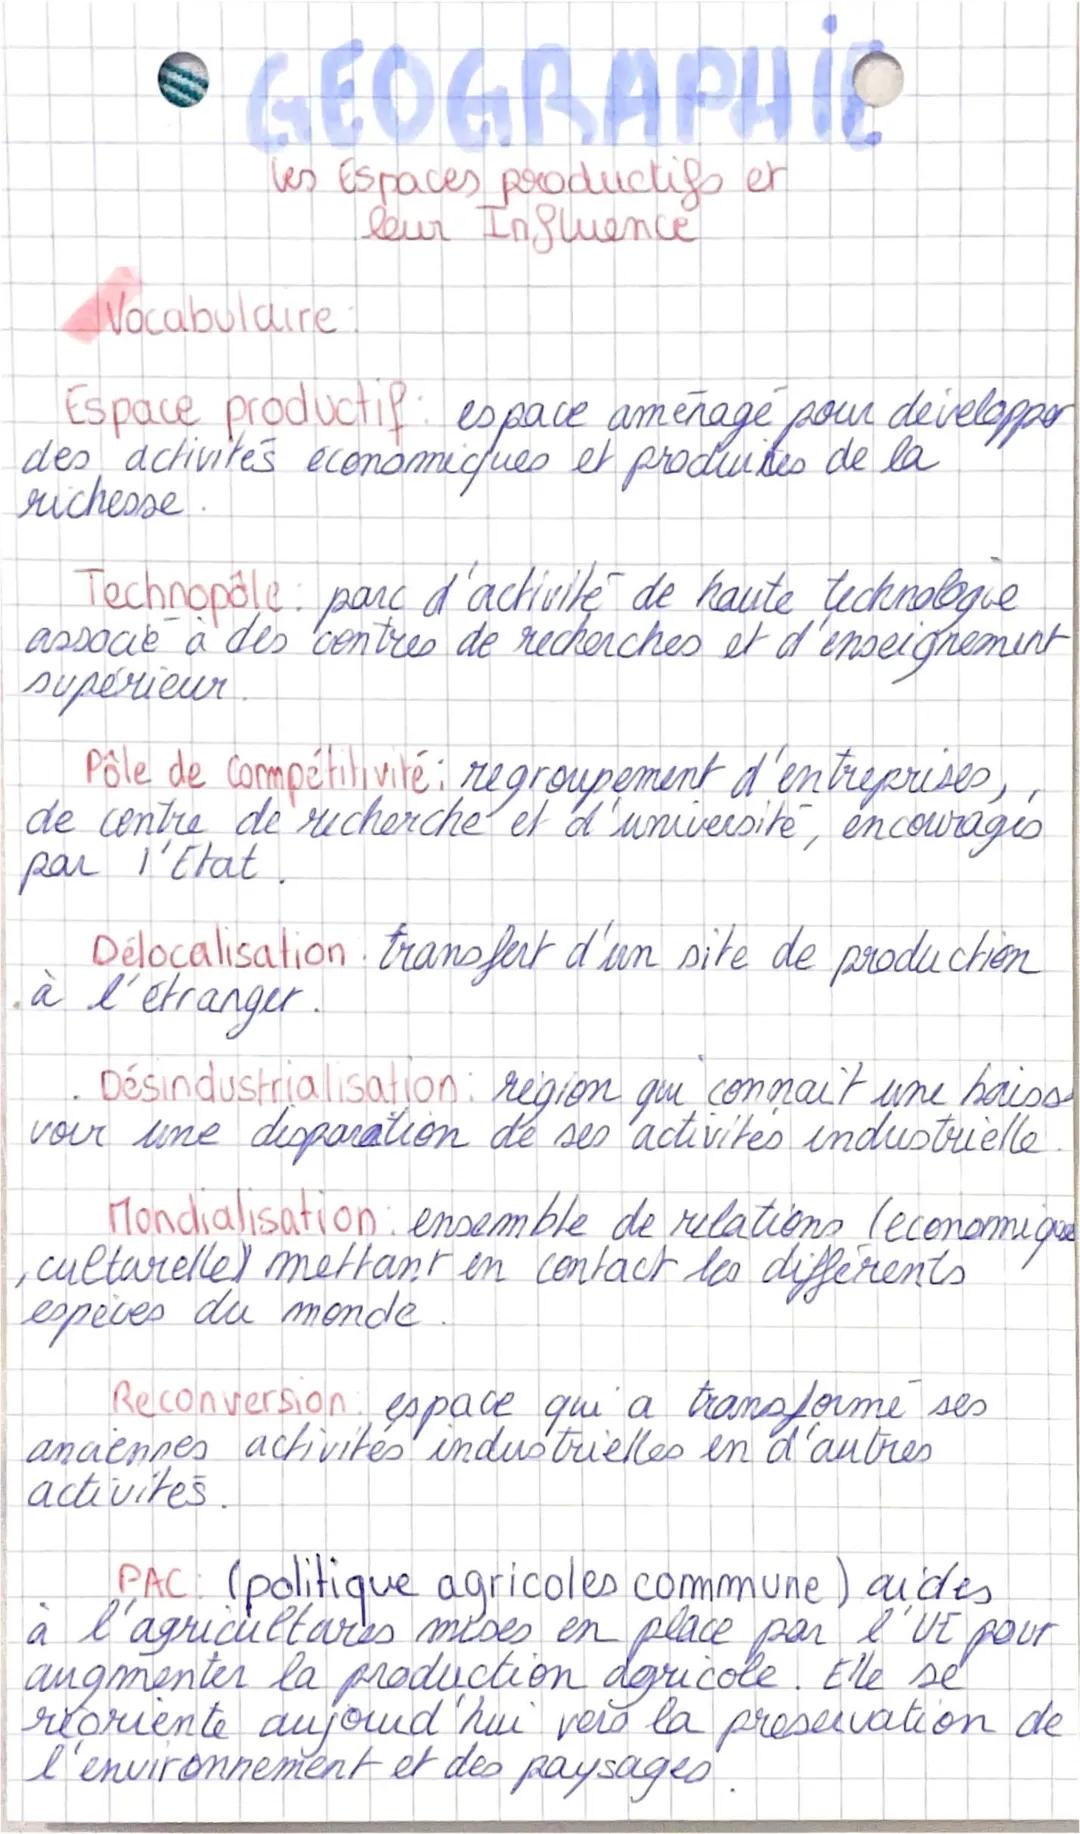 GEOGRAPHIE
les Espaces productifs et
leur Influence
Vocabulaire :
Espace productif : espace aménagé pour développer
des activités économiques et produites de la
richesse.
Technopôle : parc d'activité de haute technologie
associé à des centres de recherches et d'enseignement
supérieur.
Pôle de Commpétitivité : regroupement d'entreprises,,
de centre de recherche et d'université, encouragés
par l'Etat.
Délocalisation : transfert d'un site de production
à l'étranger.
Désindustrialisation : région qui connait une baiss
voir une disparation de ses activités industrielle.
Mondialisation : ensemble de relations (economique
, culturelle) mettant en contact les différents
espèces du monde.
Reconversion : espace qui a transformé ses
anciennes activités industrielles en d'autres
activités.
PAC : (politique agricoles commmune) aides
à l'agricultures mises en place par l'UE pour
augmenter la production agricole. Elle se
réoriente aujourd'hui vers la preservation de
l'environnement et des paysages.